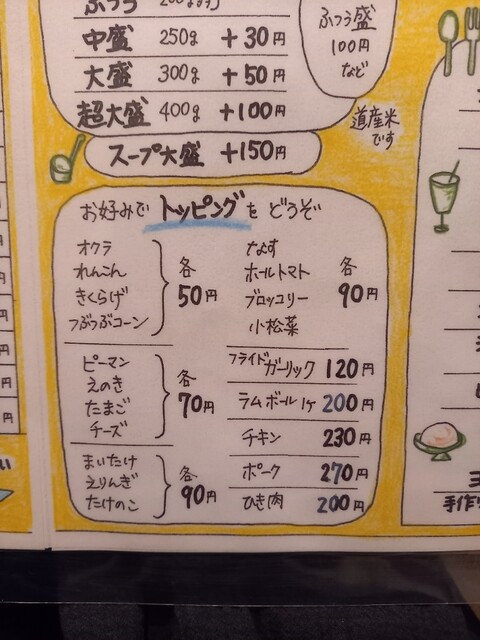 ふつう 200g
中盛 250g +30円
大盛 300g +50円
超大盛 400g +100円
スープ大盛 +150円
ふつう盛
100円
など
道産米
です
お好みで トッピングを どうぞ
オクラ
れんこん
きくらげ
つぶつぶコーン
各
50円
ピーマン
えのき
たまご
チーズ
各
70円
まいたけ
えりんぎ
たけのこ
各
90円
なす
ホールトマト
ブロッコリー
小松菜
各
90円
フライドガーリック 120円
ラムボール1ケ 200円
チキン 230円
ポーク 270円
ひき肉 200円
手作り